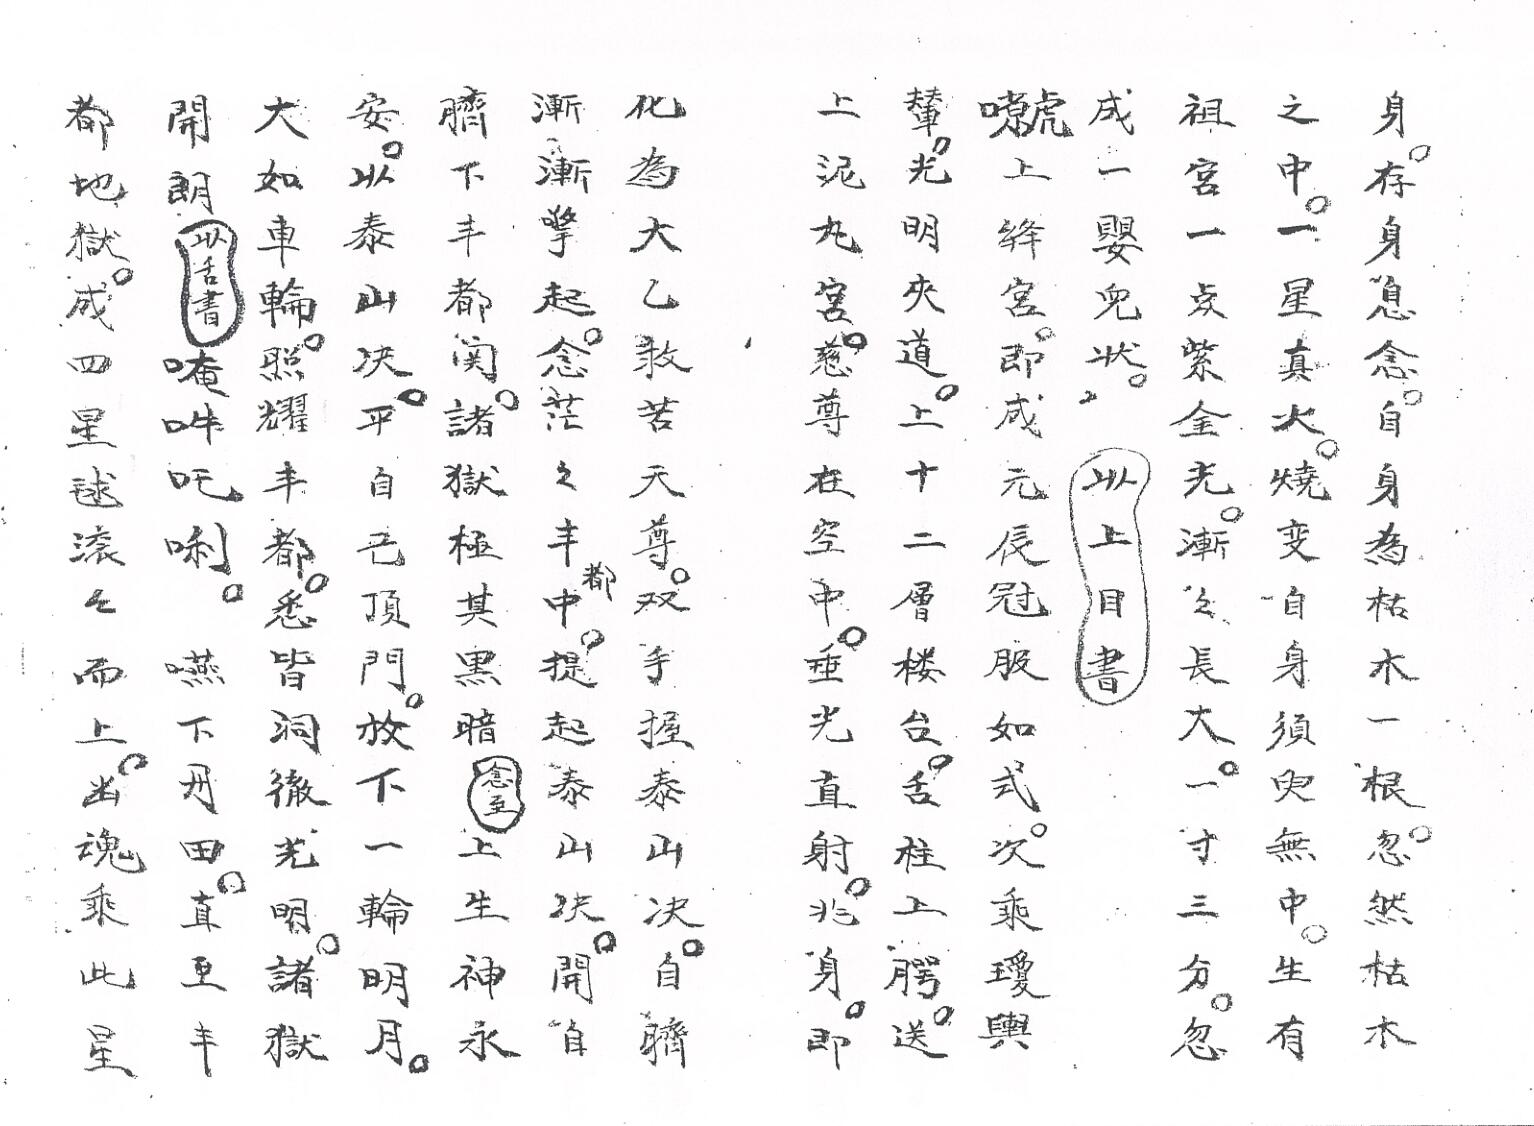 身。存身息念。自身為枯木一根。忽然枯木
之中。一星真火。燒变自身須臾無中。生有
祖宮一点紫金光。漸々長大。一寸三分。忽
成一嬰兒状。以上目書
上絳宮。即成元辰冠服如式。次乘瓊輿
輦。光明夾道。上十二層楼台。舌柱上腭。送
上泥丸宮。慈尊在空中。垂光直射。兆身。即
化為大乙救苦天尊。双手握泰山决。自臍
漸漸擎起。念茫々丰都中。提起泰山决。開自
臍下丰都関。諸獄極其黒暗念至上生神永
安。以泰山决。平自己頂門。放下一輪明月。
大如車輪。照耀丰都。悉皆洞徹光明。諸獄
開朗以舌書唵吽吒唎。嚥下丹田。直至丰
都地獄。成四星毬滚々而上。出魂乘此星